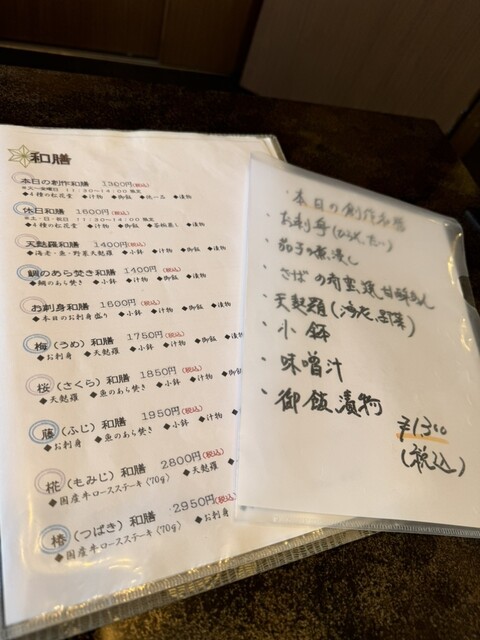 和膳
本日の創作和膳 1300円(税込)
※火~金曜日 11:30~14:00限定
◆4種の松花堂 ◆汁物 ◆御飯 ◆逸一品 ◆漬物
休日和膳 1600円(税込)
※土・日・祝日 11:30~14:00限定
◆4種の松花堂 ◆汁物 ◆御飯 ◆茶碗蒸し ◆漬物
天麩羅和膳 1400円(税込)
◆海老・魚・野菜天麩羅 ◆小鉢 ◆汁物 ◆御飯 ◆漬物
鯛のあら焚き和膳 1400円(税込)
◆鯛のあら焚き ◆小鉢 ◆汁物 ◆御飯 ◆漬物
お刺身和膳 1600円(税込)
◆本日のお刺身盛り ◆小鉢 ◆汁物 ◆御飯
梅(うめ)和膳 1750円(税込)
◆お刺身 ◆天麩羅 ◆小鉢 ◆汁物 ◆御飯
桜(さくら)和膳 1850円(税込)
◆天麩羅 ◆魚のあら焚き ◆小鉢 ◆汁物
藤(ふじ)和膳 1950円(税込)
◆お刺身 ◆魚のあら焚き ◆小鉢 ◆汁物
椛(もみじ)和膳 2800円(税込)
◆国産牛ロースステーキ(70g) ◆天麩羅
椿(つばき)和膳 2950円(税込)
◆国産牛ロースステーキ(70g) ◆お刺身
・本日の創作和膳
・お刺身(ひらめ、たい)
・茄子の煮浸し
・さばの
・天麩羅
・小鉢
・味噌汁
・御飯 漬物
¥1300
(税込)